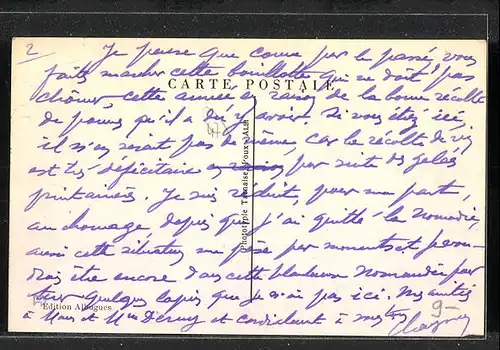 2
Je pense que comme par le passé, vous
faites marcher cette bouillotte qui ne doit pas
CARTE POSTALE
chômer, cette année en raison de la bonne récolte
de pommes qu'il a dû y avoir. Si vous étiez ici,
il n'en serait pas de même, car la récolte de vin
est très déficitaire par suite des gelées
printanières. Je suis réduit, pour ma part,
au chomage, depuis que j'ai quitté la Normandie,
aussi cette situation me pèse par moments et je vou-
drais être encore dans cette Normandie par
quelques lapins que je n'ai pas ici. Mes amitiés
à Mme et Mr et cordialement à
Phototype Tarnaise, Poux-Albi
Edition Albigues
9-